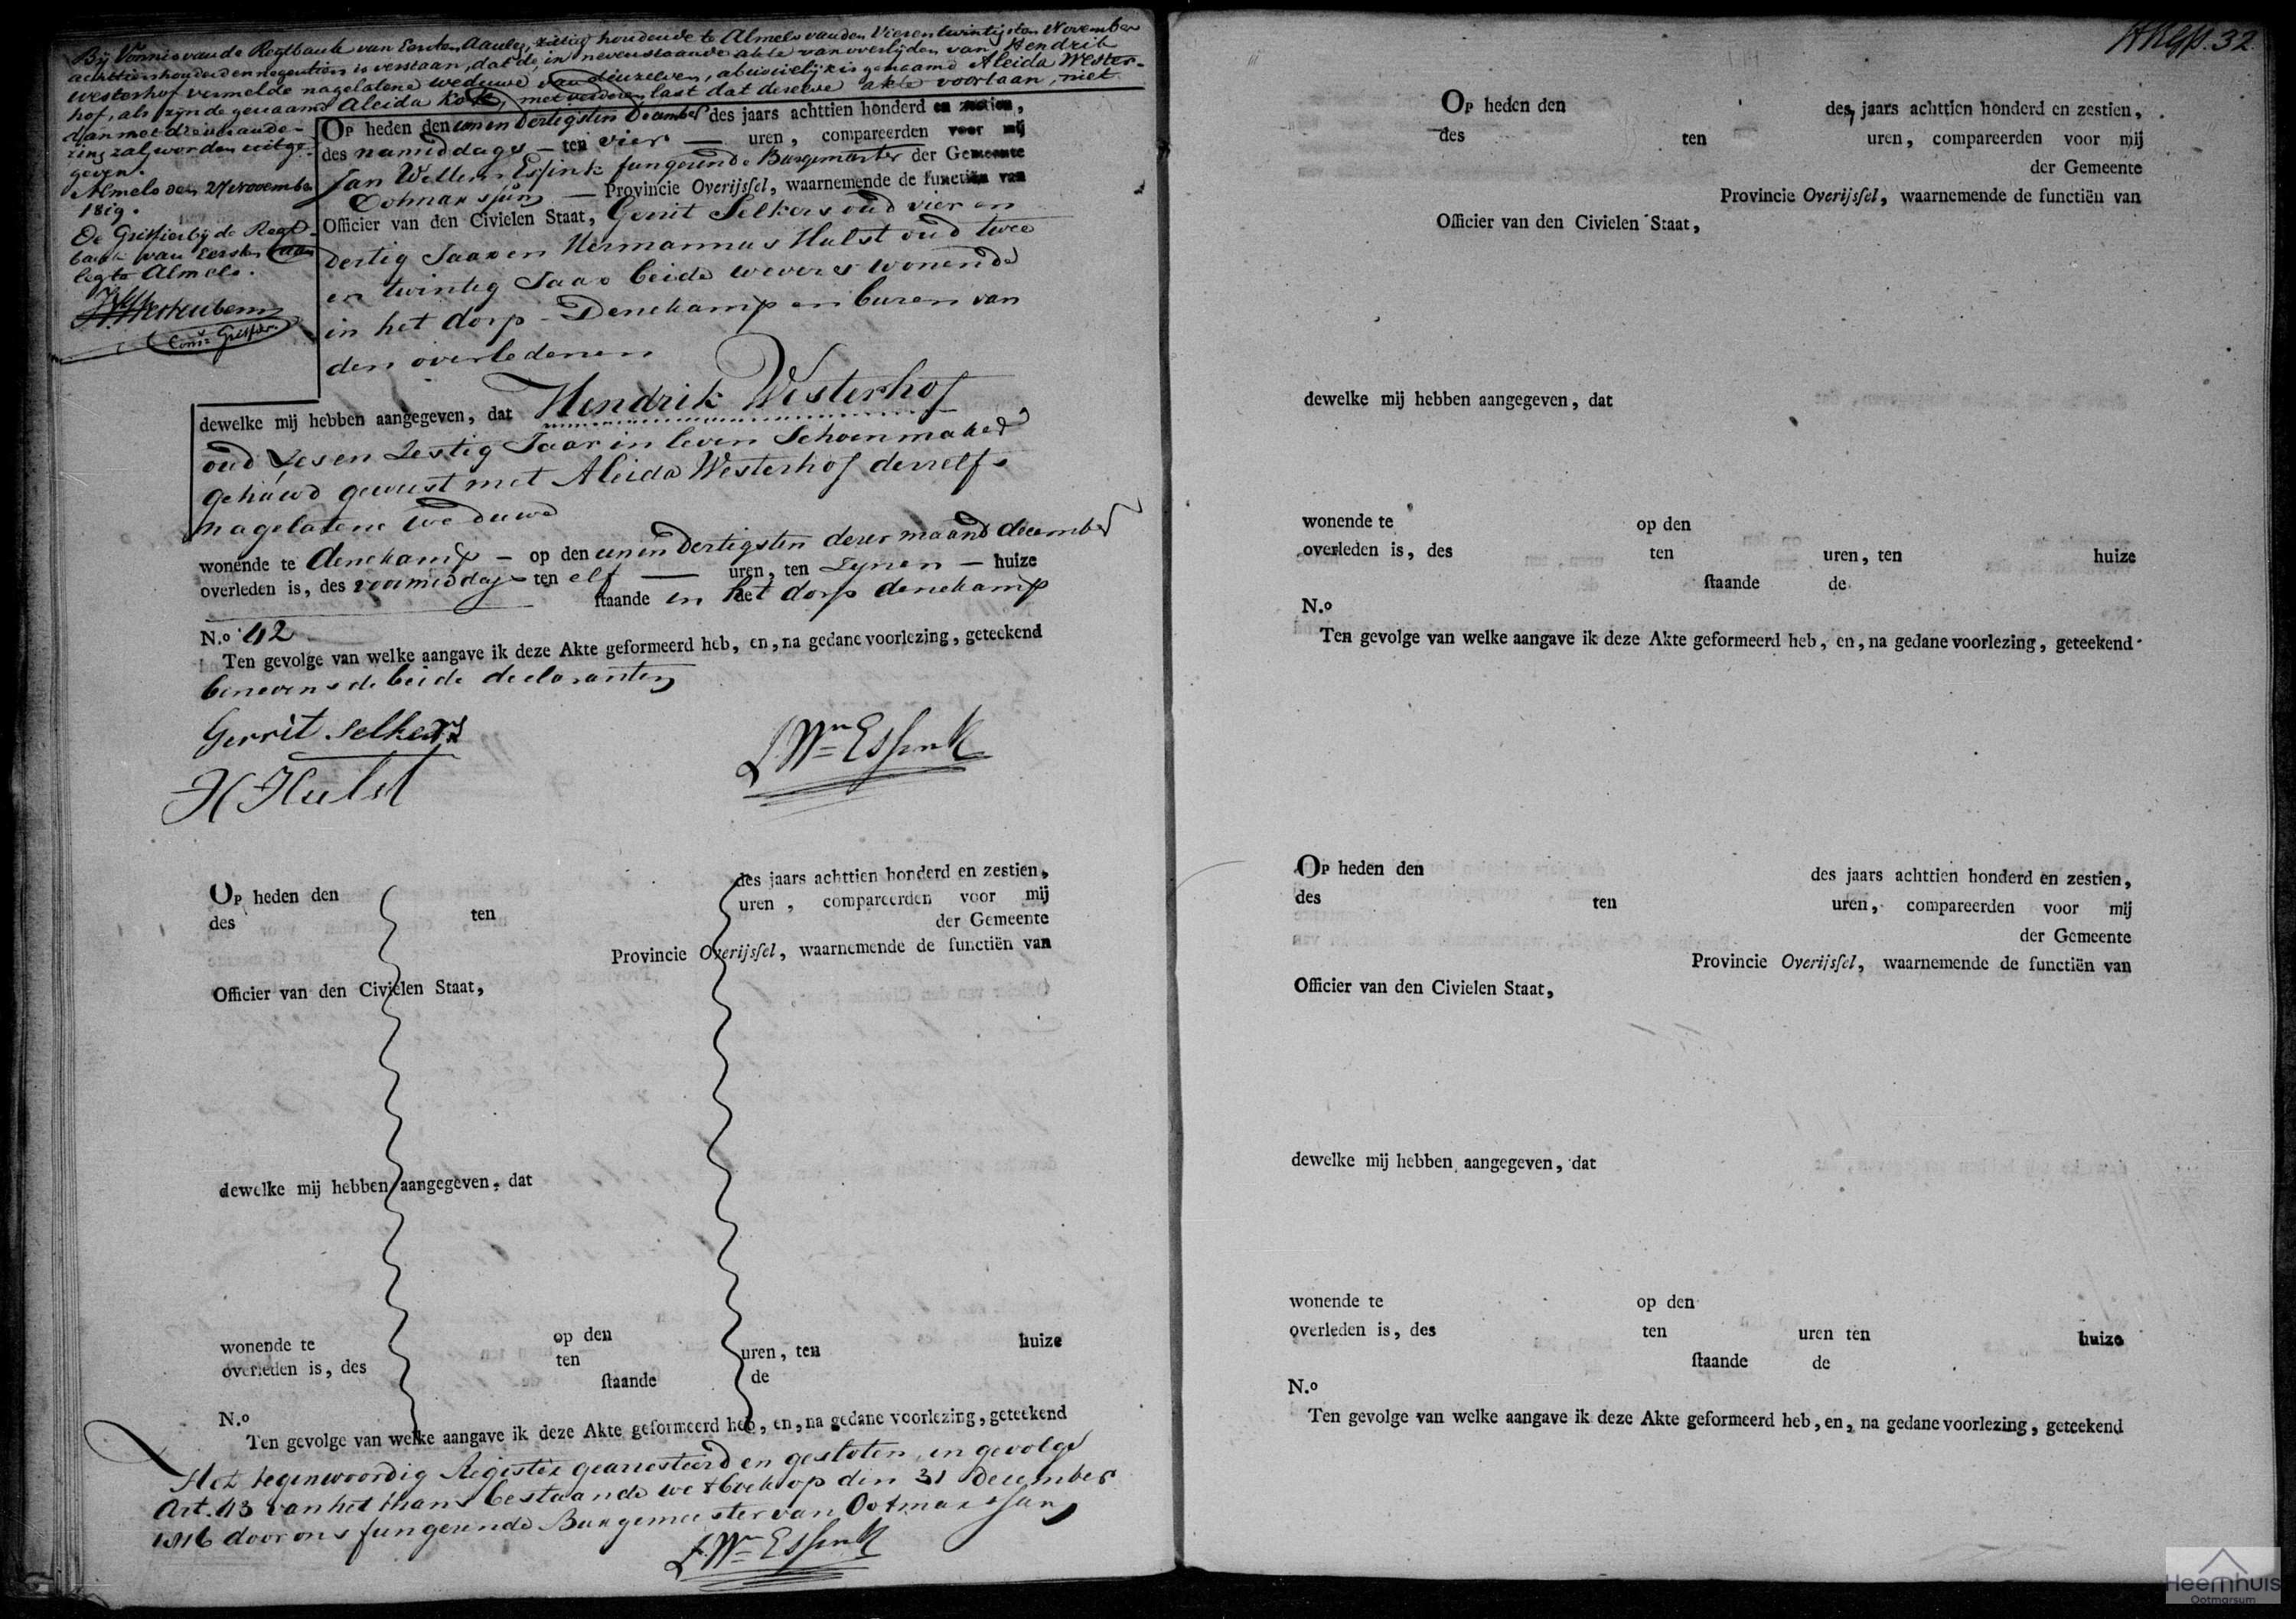 Bij Vonnis van de Regtbank van Eersten Aanleg, zitting houdende te Almelo van den Vierentwintigsten November
achttienhonderd en negentien is verstaan, dat de in nevenstaande akte van overlijden van Hendrik
Westerhof vermelde nagelatene weduwe van denzelven, abusivelijk is genaamd Aleida Wester-
hof, als zijnde genaamd Aleida Kok, met verderen last dat dezelve akte voortaan, niet
dan met die verande-
ring zal worden uitge-
geven.
Almelo den 27 November
1819.
De Griffier bij de Regt-
bank van Eersten Aan
leg te Almelo.
Coms Griffier
Op heden den eenen dertigsten December des jaars achttien honderd en zestien,
des namiddags – ten vier — uren, compareerden voor mij
Jan Willem Essink fungerende Burgemeester der Gemeente
Ootmarssum — Provincie Overijssel, waarnemende de functiën van
Officier van den Civielen Staat, Gerrit Selkers oud vier en
dertig Jaar en Hermannus Hulst oud twee
en twintig Jaar beide wevers wonende
in het dorp – Denekamp en buren van
den overledenen
dewelke mij hebben aangegeven, dat Hendrik Westerhof
oud Zes en Zestig Jaar in leven Schoenmaker
gehuwd geweest met Aleida Westerhof derzelfs
nagelatene weduwe
wonende te denekamp – op den eenen dertigsten dezer maand december
overleden is, des voormiddags ten elf — uren, ten Zynen – huize
staande in het dorp denekamp
N.o 42
Ten gevolge van welke aangave ik deze Akte geformeerd heb, en, na gedane voorlezing, geteekend
benevens de beide declaranten
Gerrit Selkers
J Wm Essink
H Hulst
Op heden den des jaars achttien honderd en zestien,
des ten uren, compareerden voor mij
der Gemeente
Provincie Overijssel, waarnemende de functiën van
Officier van den Civielen Staat,
dewelke mij hebben aangegeven, dat
wonende te op den
overleden is, des ten uren, ten huize
staande de
N.o
Ten gevolge van welke aangave ik deze Akte geformeerd heb, en, na gedane voorlezing, geteekend
Het tegenwoordig Register gearresteerd en gesloten, in gevolge
Art. 43 van het thans bestaande wetboek op den 31 December
1816 door ons fungerende Burgemeester van Ootmarssum
J Wm Essink
32
Op heden den des jaars achttien honderd en zestien,
des ten uren, compareerden voor mij
der Gemeente
Provincie Overijssel, waarnemende de functiën van
Officier van den Civielen Staat,
dewelke mij hebben aangegeven, dat
wonende te op den
overleden is, des ten uren, ten huize
staande de
N.o
Ten gevolge van welke aangave ik deze Akte geformeerd heb, en, na gedane voorlezing, geteekend
Op heden den des jaars achttien honderd en zestien,
des ten uren, compareerden voor mij
der Gemeente
Provincie Overijssel, waarnemende de functiën van
Officier van den Civielen Staat,
dewelke mij hebben aangegeven, dat
wonende te op den
overleden is, des ten uren ten huize
staande de
N.o
Ten gevolge van welke aangave ik deze Akte geformeerd heb, en, na gedane voorlezing, geteekend
Heemhuis
Ootmarsum